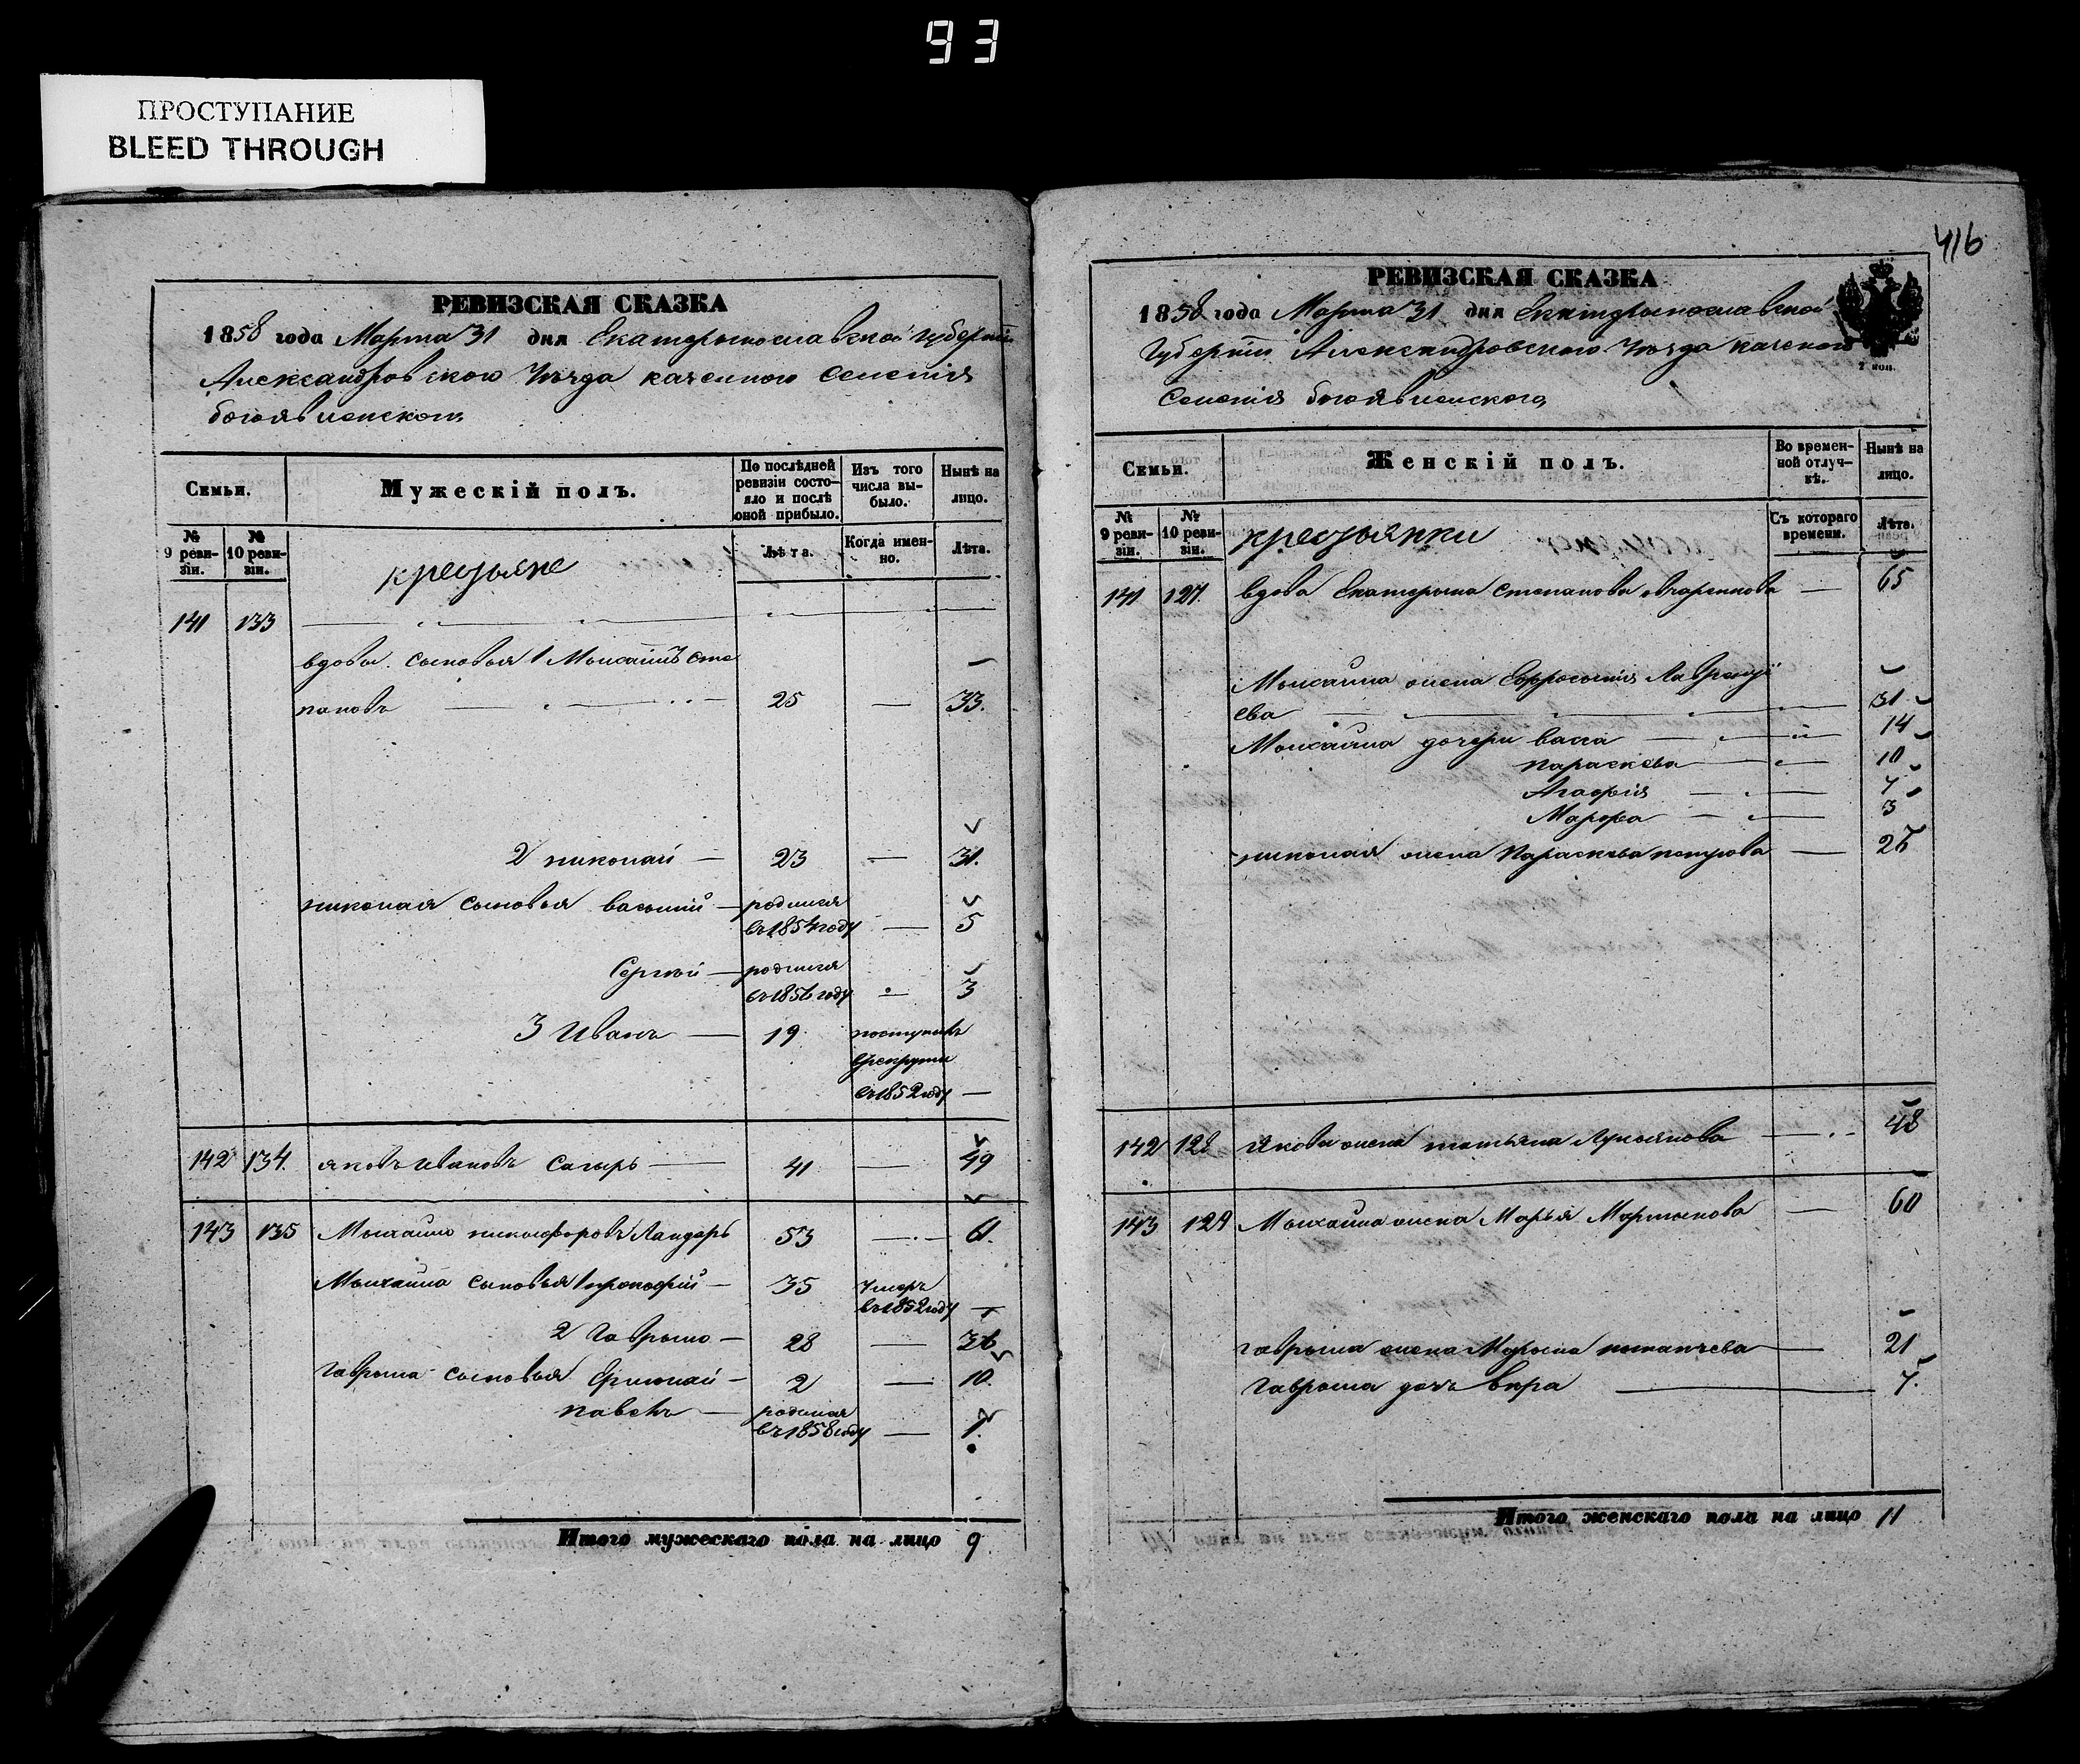 93
ПРОСТУПАНИЕ
BLEED THROUGH
РЕВИЗСКАЯ СКАЗКА
1858 года Марта 31 дня Екатерынославской Губерніи
Александровского Уѣзда казенного Селенія
богоявленского
Семьи.
Мужескій полъ.
По послѣдней ревизіи состояло и послѣ оной прибыло.
Изъ того числа выбыло.
Нынѣ на лицо.
№ 9 ревизіи.
№ 10 ревизіи.
крестьяне
Лѣта.
Когда именно.
Лѣта.
141 133
вдовы сыновья 1 Мыхайлъ Сте
пановъ 25 — 33.
2 николай — 23 — 31.
николая сыновья васылий — родился
въ 1854 году — 5
Сергѣй — родился
въ 1856 году — 3
3 Иванъ — 19 поступилъ
в рекруты
въ 1852 году —
142 134. яковъ Ивановъ Сагыръ — 41 — 49
143 135 Мыхайло никифоровъ Ландаръ 53 — 61.
Мыхайла сыновья 1 прокофій — 35 умеръ
въ 1852 году —
2 Гаврыло — 28 — 36
Гаврыла сыновья Ермолай — 2 — 10.
павелъ — родился
въ 1858 году — 1.
Итого мужескаго пола на лицо 9
416
РЕВИЗСКАЯ СКАЗКА
1858 года Марта 31 дня Екатерынославской
Губерніи Александровского Уѣзда казеного
2 коп.
Селенія богоявленского
Семьи.
Женскій полъ.
Во временной отлучкѣ.
Нынѣ на лицо.
№ 9 ревизіи.
№ 10 ревизіи.
крестьянки
Съ котораго времени.
Лѣта.
141 127. вдова Екатерына Степанова овчаренкова — 65
Мыхайла жена Ефросынія Лавренті
ева — 31
Мыхайла дочери васса — 14
параскева — 10
Агафія — 7
Марфа — 3
николая жена Параскева петрова — 27
142 128 Якова жена татьяна Лукьянова — 48
143 129 Мыхайла жена Марья Мартынова — 60
Гаврыла жена Марына — 21
Гаврыла дочь вѣра — 7.
Итого женскаго пола на лицо 11